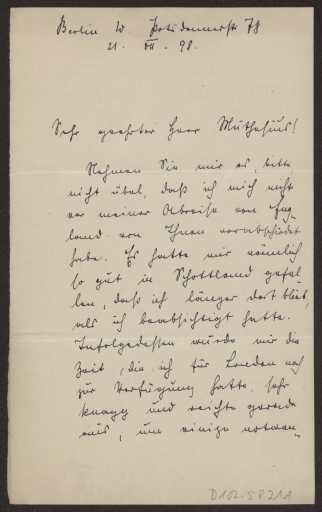 Berlin W Potsdamerstr 78
21. VII. 98.
Sehr geehrter Herr Muthesius!
Nehmen Sie mir es, bitte
nicht übel, daß ich mich nicht
vor meiner Abreise von Eng-
land von Ihnen verabschiedet
habe. Es hatte mir nämlich
so gut in Schottland gefal-
len, daß ich länger dort blieb,
als ich beabsichtigt hatte.
Infolgedessen wurde mir die
Zeit, die ich für London noch
zur Verfügung hatte, sehr
knapp und reichte gerade
aus, um einige notwen-
D102-5821.1